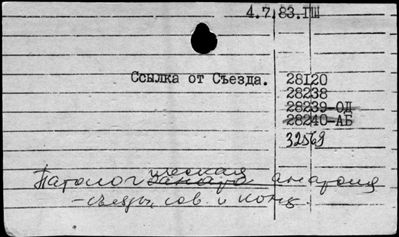 4.7.83.ГШ
Ссылка от Съезда. 28120
28238
28239-ОД
28240-АБ
32569
Патологическая анатомия
-съезды, сов. и конф.